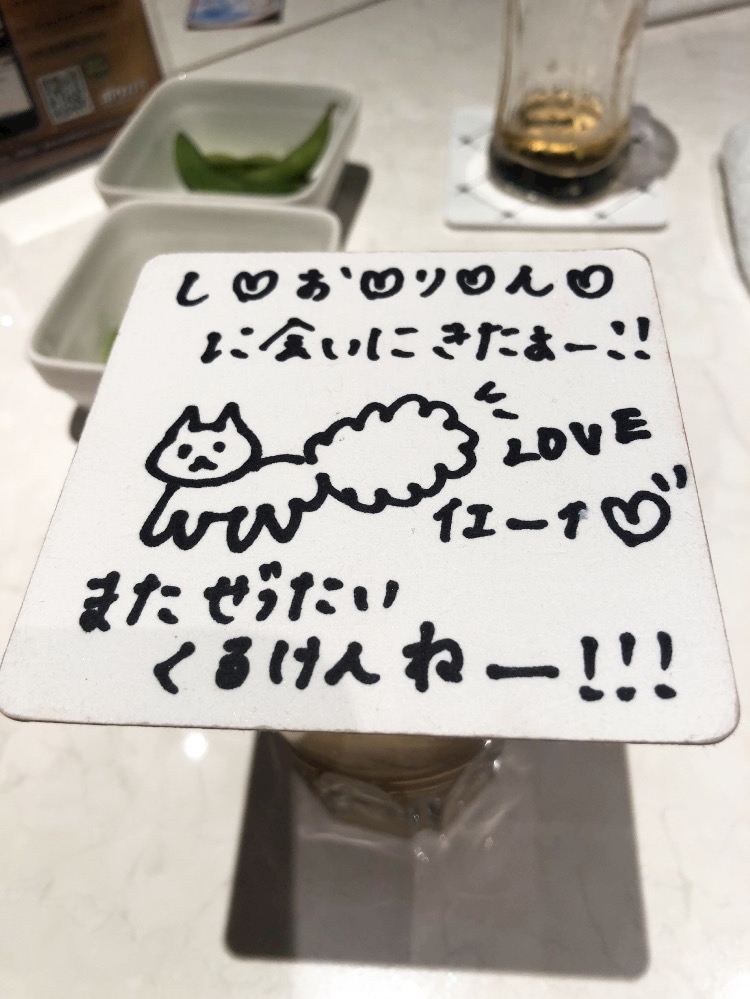 し♡お♡り♡ん♡
に会いにきたよー!!
LOVE
イエーイ♡
またぜったい
くるけんねー!!!